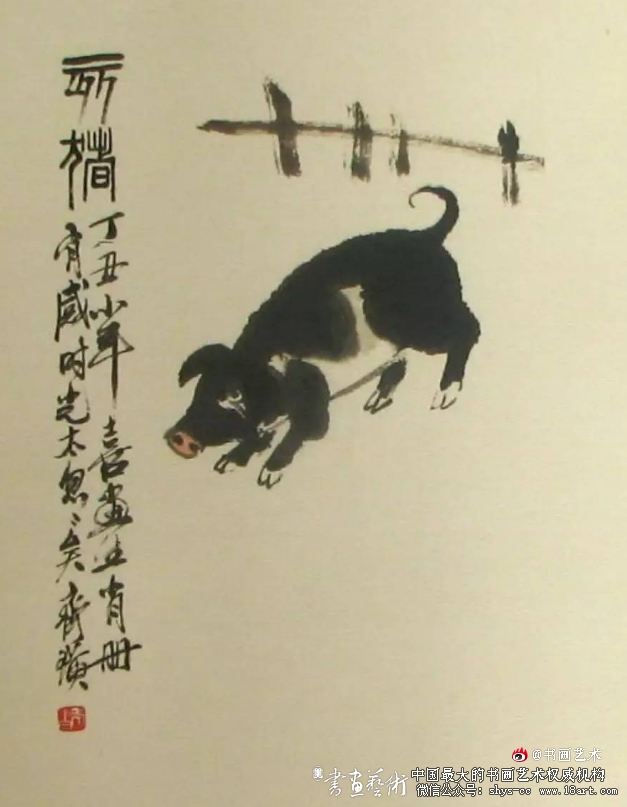 猪
丁丑小年喜畫生肖册
有感时光太忽〻矣齊璜
@书画艺术
書畫藝術 中国最大的书画艺术权威机构
微信公众号：shys-cc www.18art.com